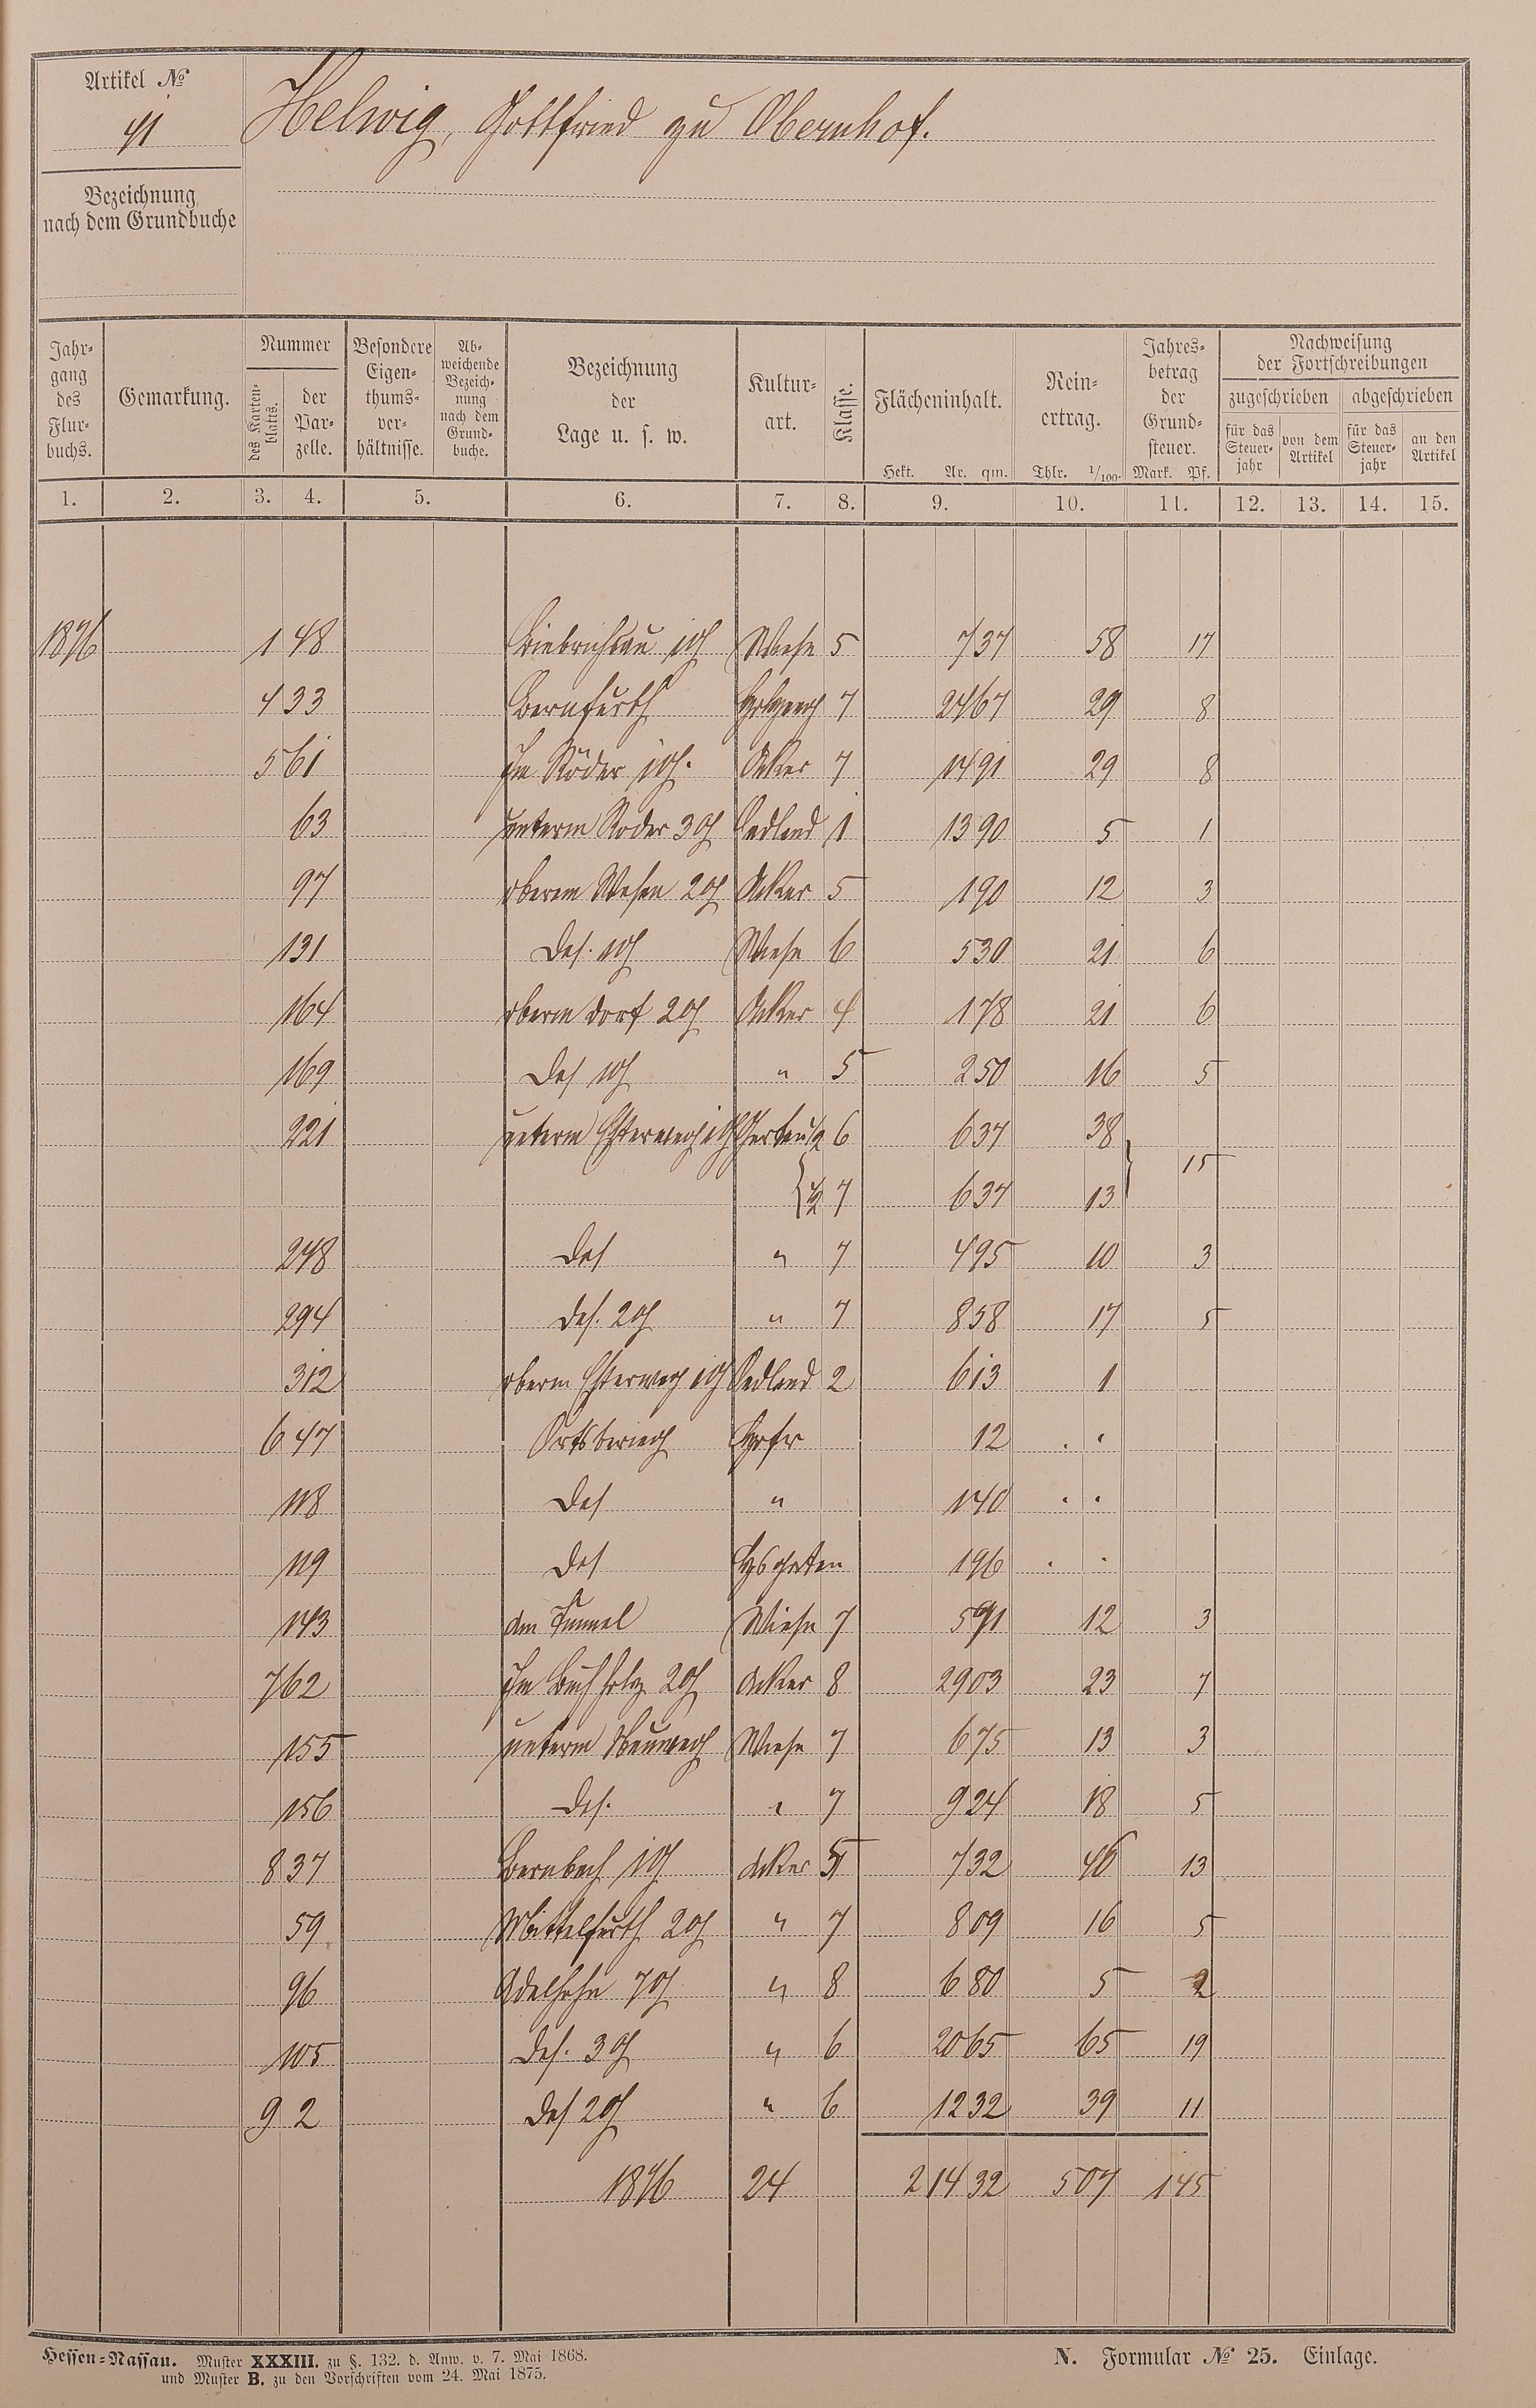 Artikel №
41
Helwig, Gottfried zu Obernhof.
Bezeichnung
nach dem Grundbuche
Jahr-
gang
des
Flur-
buchs.
Gemarkung.
Nummer
des Karten-
blatts.
der
Par-
zelle.
Besondere
Eigen-
thums-
ver-
hältnisse.
Ab-
weichende
Bezeich-
nung
nach dem
Grund-
buche.
Bezeichnung
der
Lage u. s. w.
Kultur-
art.
Klasse.
Flächeninhalt.
Hekt. Ar. qm.
Rein-
ertrag.
Thlr. 1/100.
Jahres-
betrag
der
Grund-
steuer.
Mark. Pf.
Nachweisung
der Fortschreibungen
zugeschrieben
abgeschrieben
für das
Steuer-
jahr
von dem
Artikel
für das
Steuer-
jahr
an den
Artikel
1. 2. 3. 4. 5. 6. 7. 8. 9. 10. 11. 12. 13. 14. 15.
1876 1 48 Wiese 5 7 37 58 17
4 33 Bernfurth 7 24 67 29 8
5 61 Im Röder 1 G. Acker 7 14 91 29 8
63 unterm Röder 3 G Oedland 1 13 90 5 1
97 Acker 5 1 90 12 3
131 Des. 1 G Wiese 6 5 30 21 6
164 oberm Dorf 2 G Acker 4 1 78 21 6
169 Des 1 G " 5 2 50 16 5
221 unterm 1/2 6 6 37 38
15
1/2 7 6 37 13
248 Des " 7 4 95 10 3
294 Des. 2 G " 7 8 58 17 5
312 oberm Oedland 2 6 13 1
6 47 Ortsbering Hofr 12 . .
118 Des " 1 40 . .
119 Des Hsgarten 1 96 . .
143 Am Tunnel Wiese 7 5 91 12 3
7 62 Im Buchholz 2 G Acker 8 29 03 23 7
155 unterm Neuweg Wiese 7 6 75 13 3
156 Des. " 7 9 24 18 5
8 37 Bernbach 1 G Acker 5 7 32 46 13
59 Mittelfurth 2 G " 7 8 09 16 5
96 7 G " 8 6 80 5 2
105 Des. 3 G " 6 20 65 65 19
9 2 Des 2 G " 6 12 32 39 11
1876 24 2 14 32 5 07 1 45
Hessen-Nassau. Muster XXXIII. zu §. 132. d. Anw. v. 7. Mai 1868.
und Muster B. zu den Vorschriften vom 24. Mai 1875.
N. Formular № 25. Einlage.